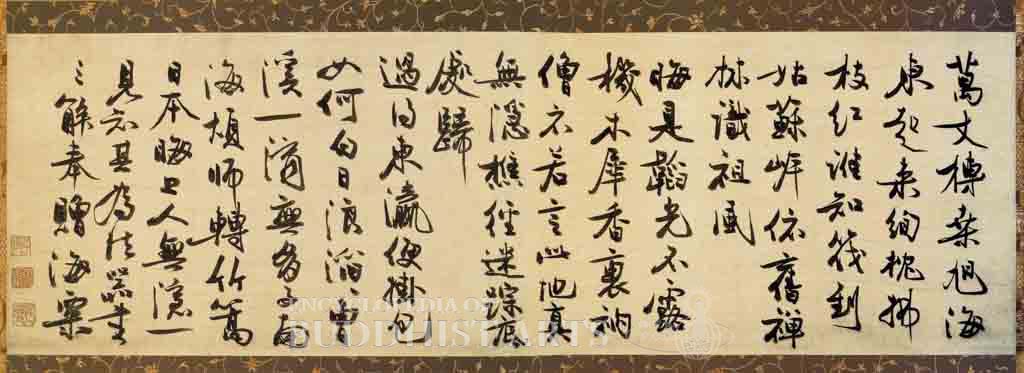 萬丈槫桑旭海
東起来絢枕拂
枝紅誰知筏到
姑蘇岸依舊禪
林識祖風
晦是韜光不露
機木犀香裏衲
僧衣若言此地真
無隱樵徑迷踪底
處歸
過得東瀛便掛包
如何白日浪滔々曹
溪一滴無多子南
海煩師轉竹篙
日本晦上人無隱一
見知其為法器書
三解奉贈 海粟
ENCYCLOPEDIA OF
BUDDHIST ARTS